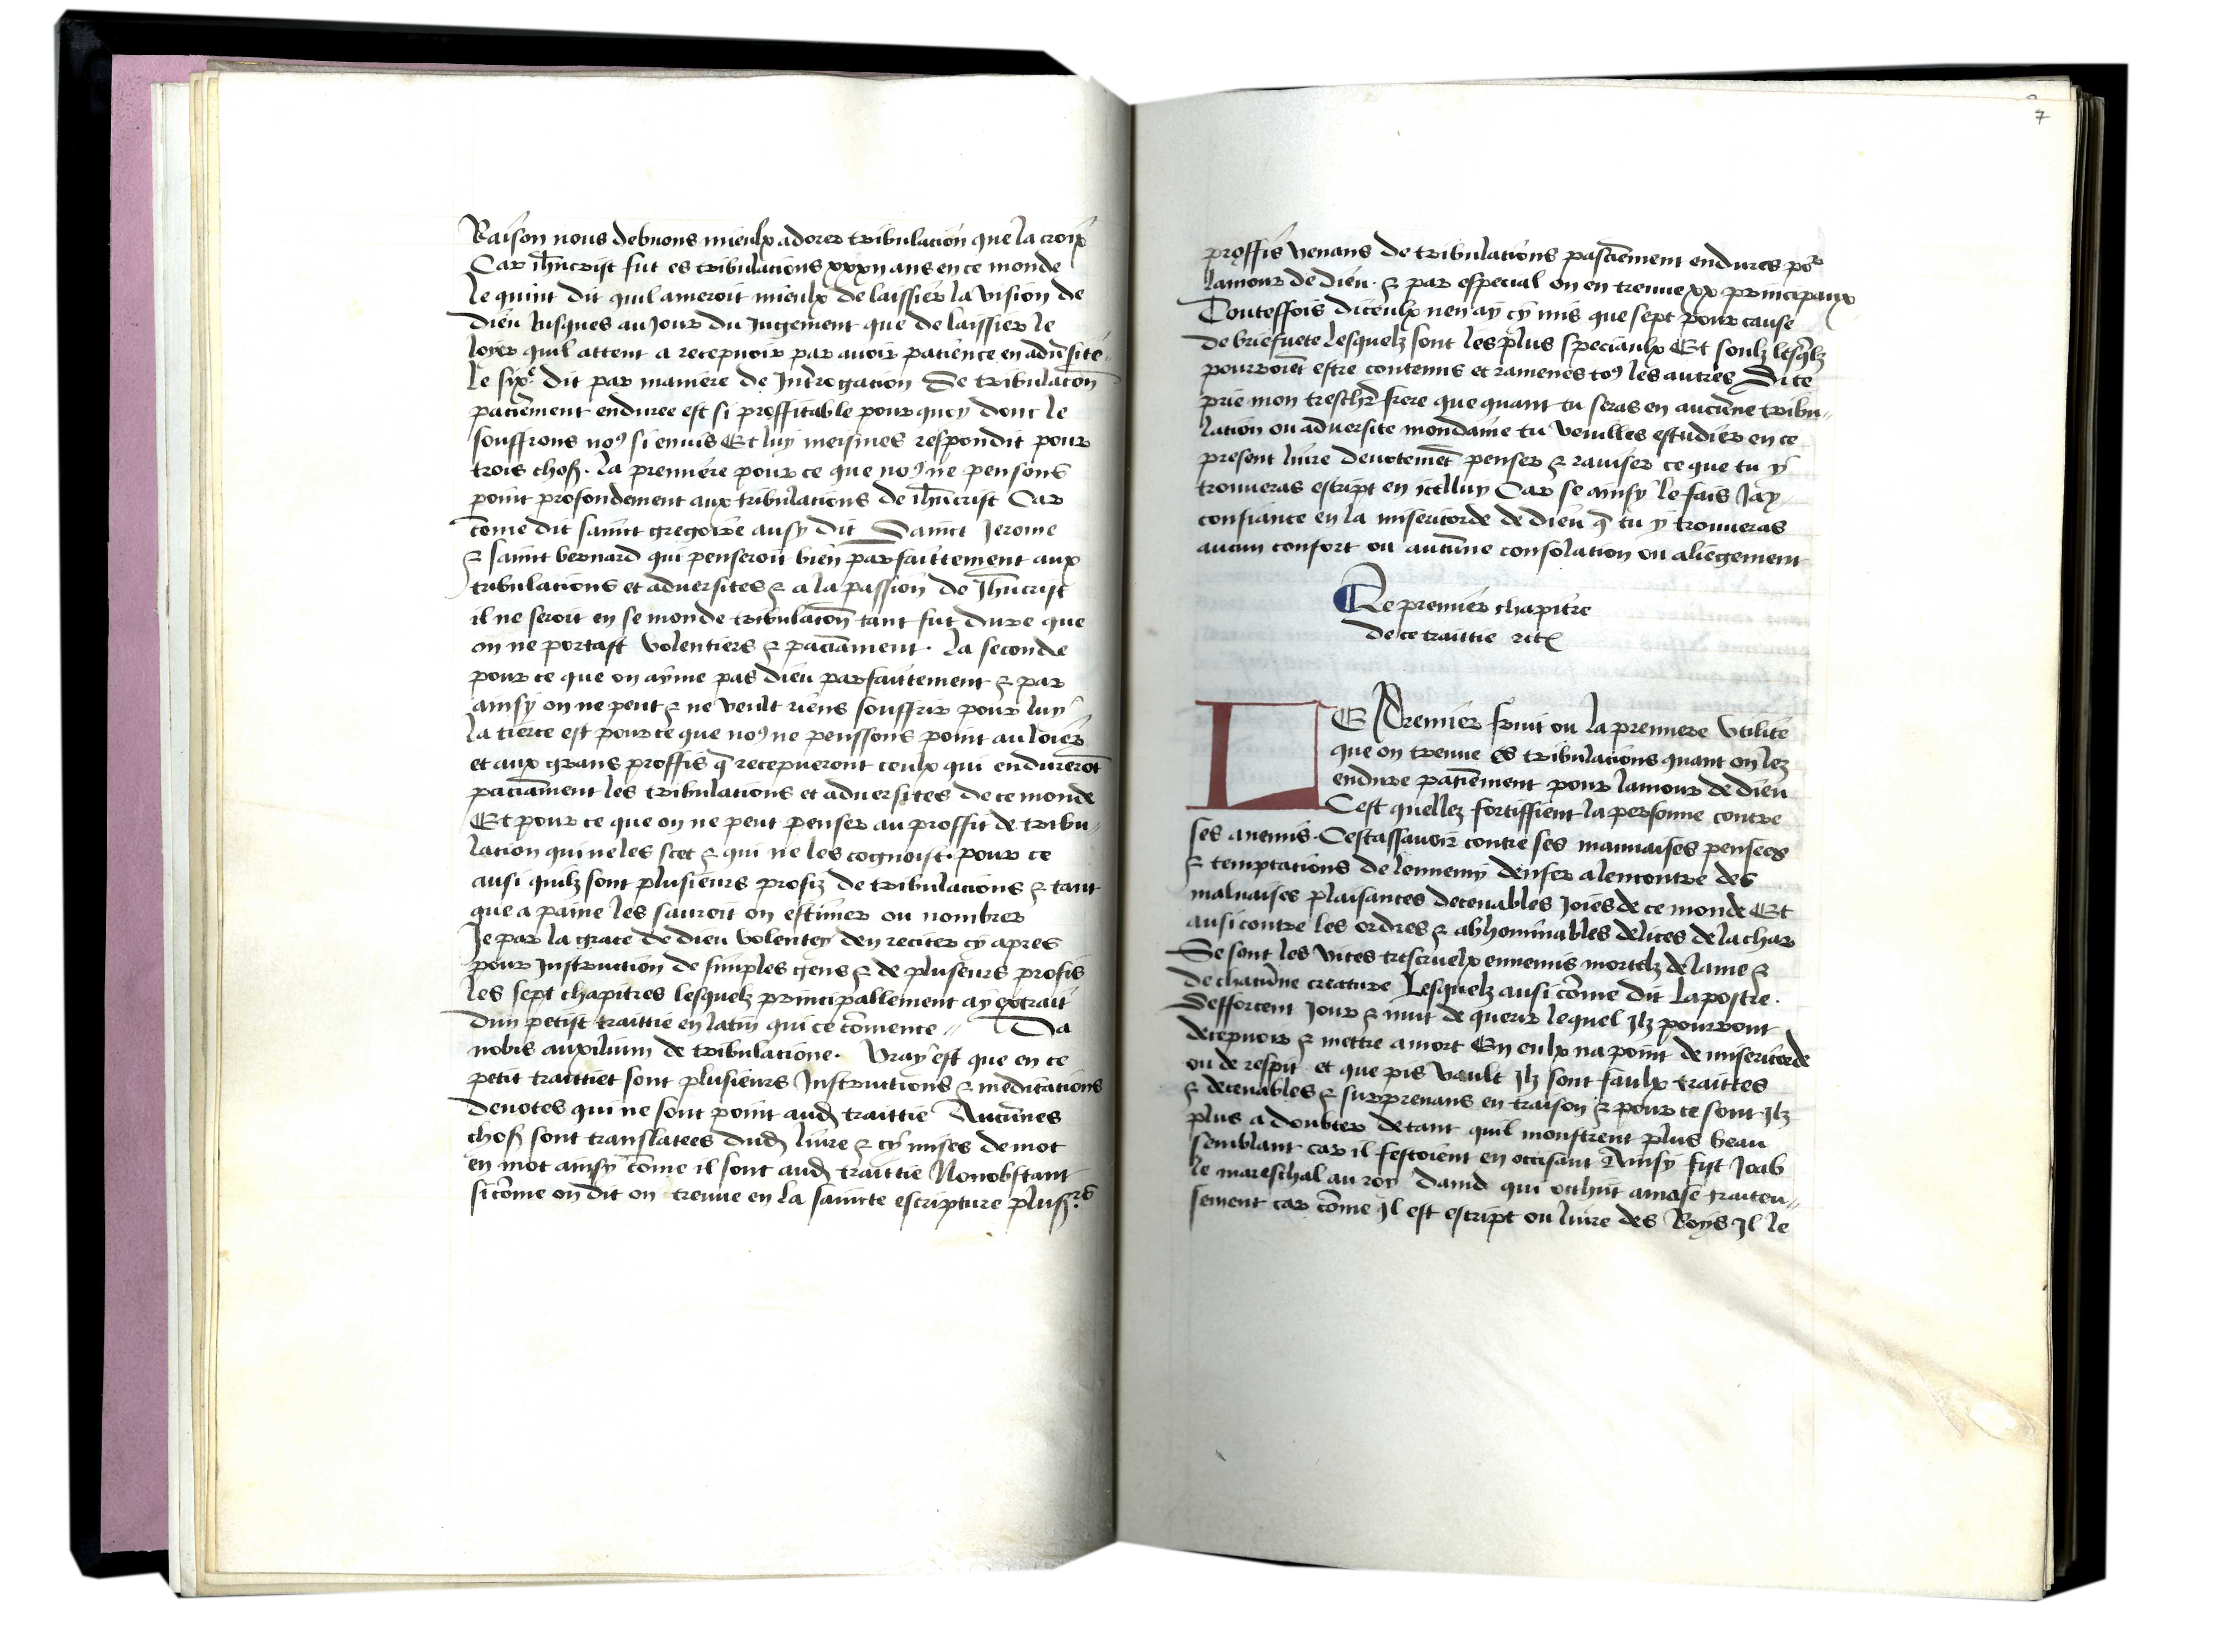 Raison nous debuons mieulx adorer tribulacion que la croix
Car ih̅ucrist fut es tribulacions xxxij ans en ce monde
Le quint dit quil ameroit mieulx de laissier la vision de
dieu Iusques au Iour du Iugement que de laissier le
loyer quil attent a recepuoir par auoir patience en adu̅site
Le sixe dit par maniere de Int̅rogation Se tribulaco̅n
patie̅ment enduree est si proffitable pour quoy dont le
souffrons no9 si enuis Et luy meismes respondit pour
trois choß. La premiere pour ce que no9 ne pensons
point profondement aux tribulacions de ih̅ucrist Car
co̅me dit saint gregoire ausy dit Sainct Jerome
& saint bernard qui penseroit bien parfaittement aux
tribulacions et aduersites & a la passion de Jh̅ucrist
il ne seroit en se monde tribulaco̅n tant fut dure que
on ne portast volentiers & pacia̅ment. La seconde
pour ce que on ayme pas dieu parfaittement & par
ainsy on ne peut & ne veult riens souffrir pour luy
La tierce est pour ce que no9 ne penssons point au loier
et aux grans proffis q̅ recepueront ceulx qui endurero̅t
pacia̅ment les tribulacions et aduersites de ce monde
Et pour ce que on ne peut penser au proffit de tribu〃
lation qui ne les scet & qui ne les cognoist. pour ce
ausi quilz sont plusieurs profiz de tribulacions & tant
que a paine les sauroit on estimer ou nombrer
Je par la grace de dieu volentey den reciter cy apres
pour Instruction de simples gens & de pluseurs profis
les sept chapitres lesquelz principallement ay extrait
dun petist traittie en latin qui ce co̅mence〃 Da
nobis auxilium de tribulacione. Vray est que en ce
petit traittiet sont plusieurs Instructions & meditacions
deuotes qui ne sont point aud̨ traittie Aucu̅nes
choß sont translatees dud̨ liure & cy mises de mot
en mot ainsy co̅me il sont aud̨ traittie Nonobstant
sico̅me on dit on treuue en la saincte escripture plusß.rs
7
proffis venans de tribulacions pascie̅ment endures por
lamour de dieu. & par especial on en treuue xx principaux
Touteffois diceulx nen ay cy mis que sept pour cause
de briefuete lesquelz sont les plus speciaulx Et soulz lesq̅lz
pourroie̅t estre contenus et ramenes to9 les autres Si te
prie mon tresch̅r frere que quant tu seras en aucu̅ne tribu〃
lation ou aduersite mondaine tu veuilles estudier en ce
present liure deuoteme̅t penser & rauiser ce que tu y
trouueras escript en icelluy Car se ainsy le fais Jay
confiance en la misericorde de dieu q̅ tu y trouueras
aucun confort ou aucu̅ne consolation ou aliegement
Le premier chapitre
de ce traittie
LE Premier fruit ou la premiere vtilite
que on treuue es tribulacions quant on lez
endure patie̅ment pour lamour de dieu
Cest quellez fortiffient la personne contre
ses anemis. Cestassauoir contre ses mauuaises pensees
& temptacions de lennemy denfer alencontre des
maluaises plaisances deceuables Joies de ce monde Et
ausi contre les ordres & abhominables delices de la char
Se sont les vices trescruelx ennemis mortelz de lame &
de chacu̅ne creature Lesquelz ausi co̅me dit Lapostre.
Sefforcent Jour & nuit de querir lequel Jlz pourront
decepuoir & mettre a mort En eulx na point de misericorde
ou de respit et que pis vault Jlz sont faulx traittes
& deceuables & surprenans en traison & pour ce sont Jlz
plus a doubter de tant quil monstrent plus beau
semblant car il festoient en occisant Ainsy fist Joab
le mareschal au roy dauid qui occhit amase traiteu〃
sement car co̅me Jl est escript ou liure des Roys Jl le